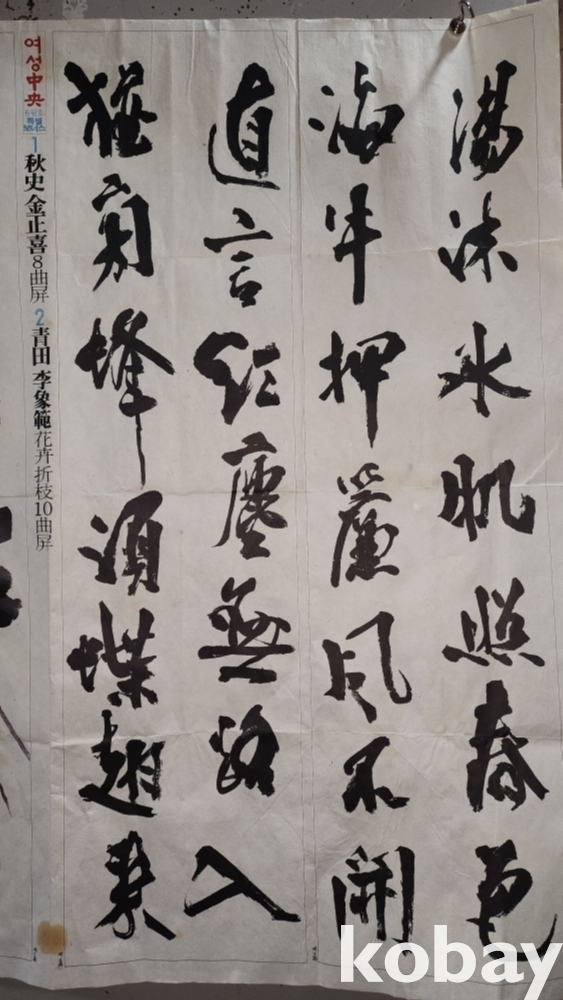 湯沐氷肌照春色
海牛押簾風不開
直言紅塵無路入
猶蜂須蝶翅來
여성中央
특별
보너스
1 秋史 金正喜 8曲屏 2 青田 李象範 花卉折枝 10曲屏
kobay